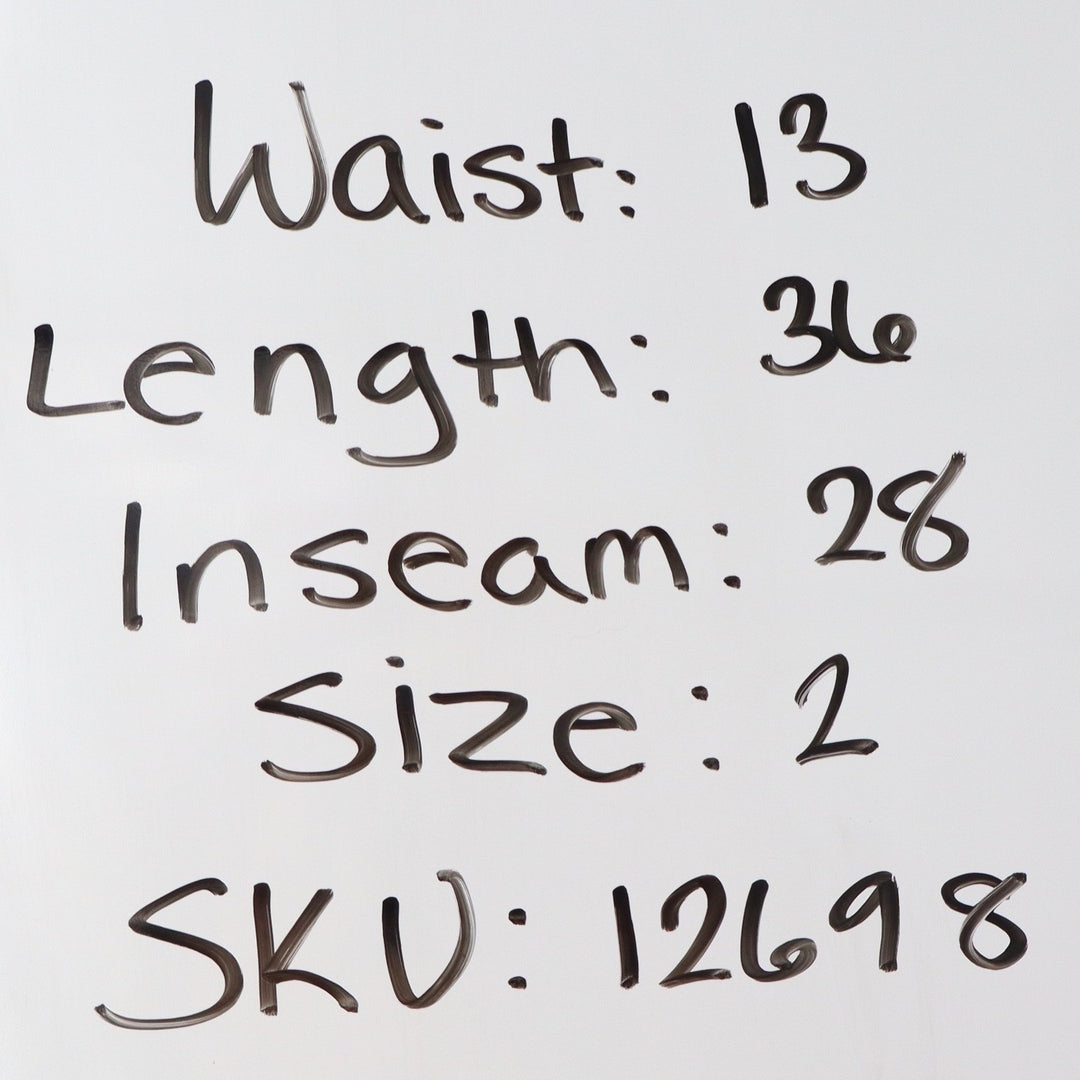 Waist: 13
Length: 36
Inseam: 28
Size: 2
SKU: 12698